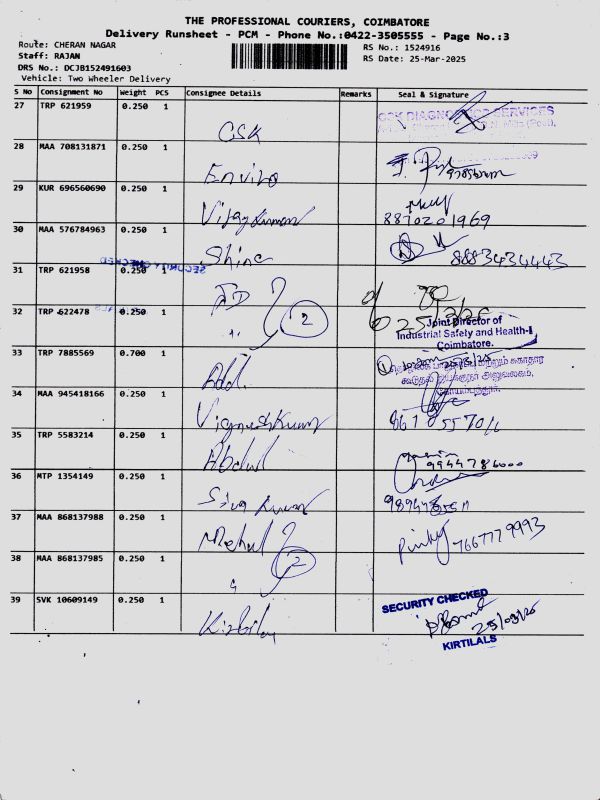 THE PROFESSIONAL COURIERS, COIMBATORE
Delivery Runsheet - PCM - Phone No.:0422-3505555 - Page No.:3
Route: CHERAN NAGAR
RS No.: 1524916
Staff: RAJAN
RS Date: 25-Mar-2025
DRS No.: DCJB152491603
Vehicle: Two Wheeler Delivery
S No Consignment No Weight PCS Consignee Details Remarks Seal & Signature
27 TRP 621959 0.250 1
CSK DIAGNOSTICS SERVICES
CSK
28 MAA 708131871 0.250 1
Enviro
29 KUR 696560690 0.250 1
Vijaykumar
8870201969
30 MAA 576784963 0.250 1
Shine
8883434443
SECURITY CHECKED
31 TRP 621958 0.250 1
32 TRP 622478 0.250 1
2
Joint Director of
Industrial Safety and Health-I
Coimbatore.
33 TRP 7885569 0.700 1
கூடுதல் இயக்குநர் அலுவலகம்,
கோயம்புத்தூர்.
34 MAA 945418166 0.250 1
Vignesh Kumar
35 TRP 5583214 0.250 1
Abdul
36 MTP 1354149 0.250 1
Siva Kumar
37 MAA 868137988 0.250 1
Mehul
Pinky 7667779993
38 MAA 868137985 0.250 1
2
39 SVK 10609149 0.250 1
SECURITY CHECKED
25/03/25
KIRTILALS